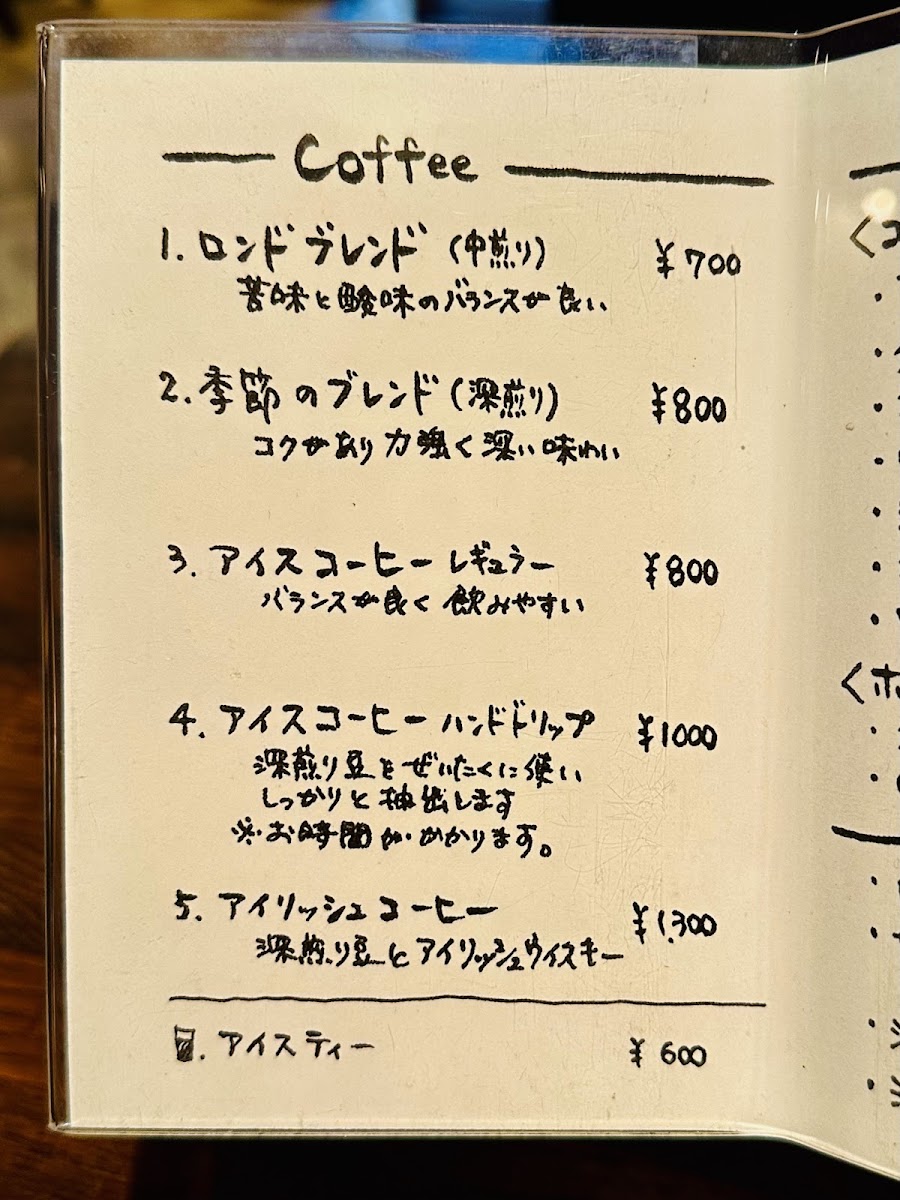 Coffee
1. ロンドブレンド (中煎り) ¥700
苦味と酸味のバランスが良い
2. 季節のブレンド (深煎り) ¥800
コクがあり力強く深い味わい
3. アイスコーヒー レギュラー ¥800
バランスが良く飲みやすい
4. アイスコーヒー ハンドドリップ ¥1000
深煎り豆をぜいたくに使い
しっかりと抽出します
※お時間がかかります。
5. アイリッシュコーヒー ¥1,300
深煎り豆とアイリッシュウイスキー
アイスティー ¥600